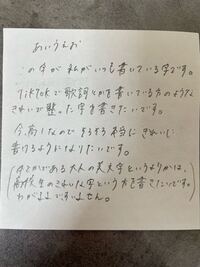 あいうえお
の字が私がいつも書いている字です。
TikTokで歌詞とかを書いている方のような
きれいで整った字を書きたいです。
今、高1なのでそろそろ本当にきれいに
書けるようになりたいです。
(中とかである大人の美文字というよりかは、
高校生のきれいな字という方を書きたいです。
わがままですいません。)